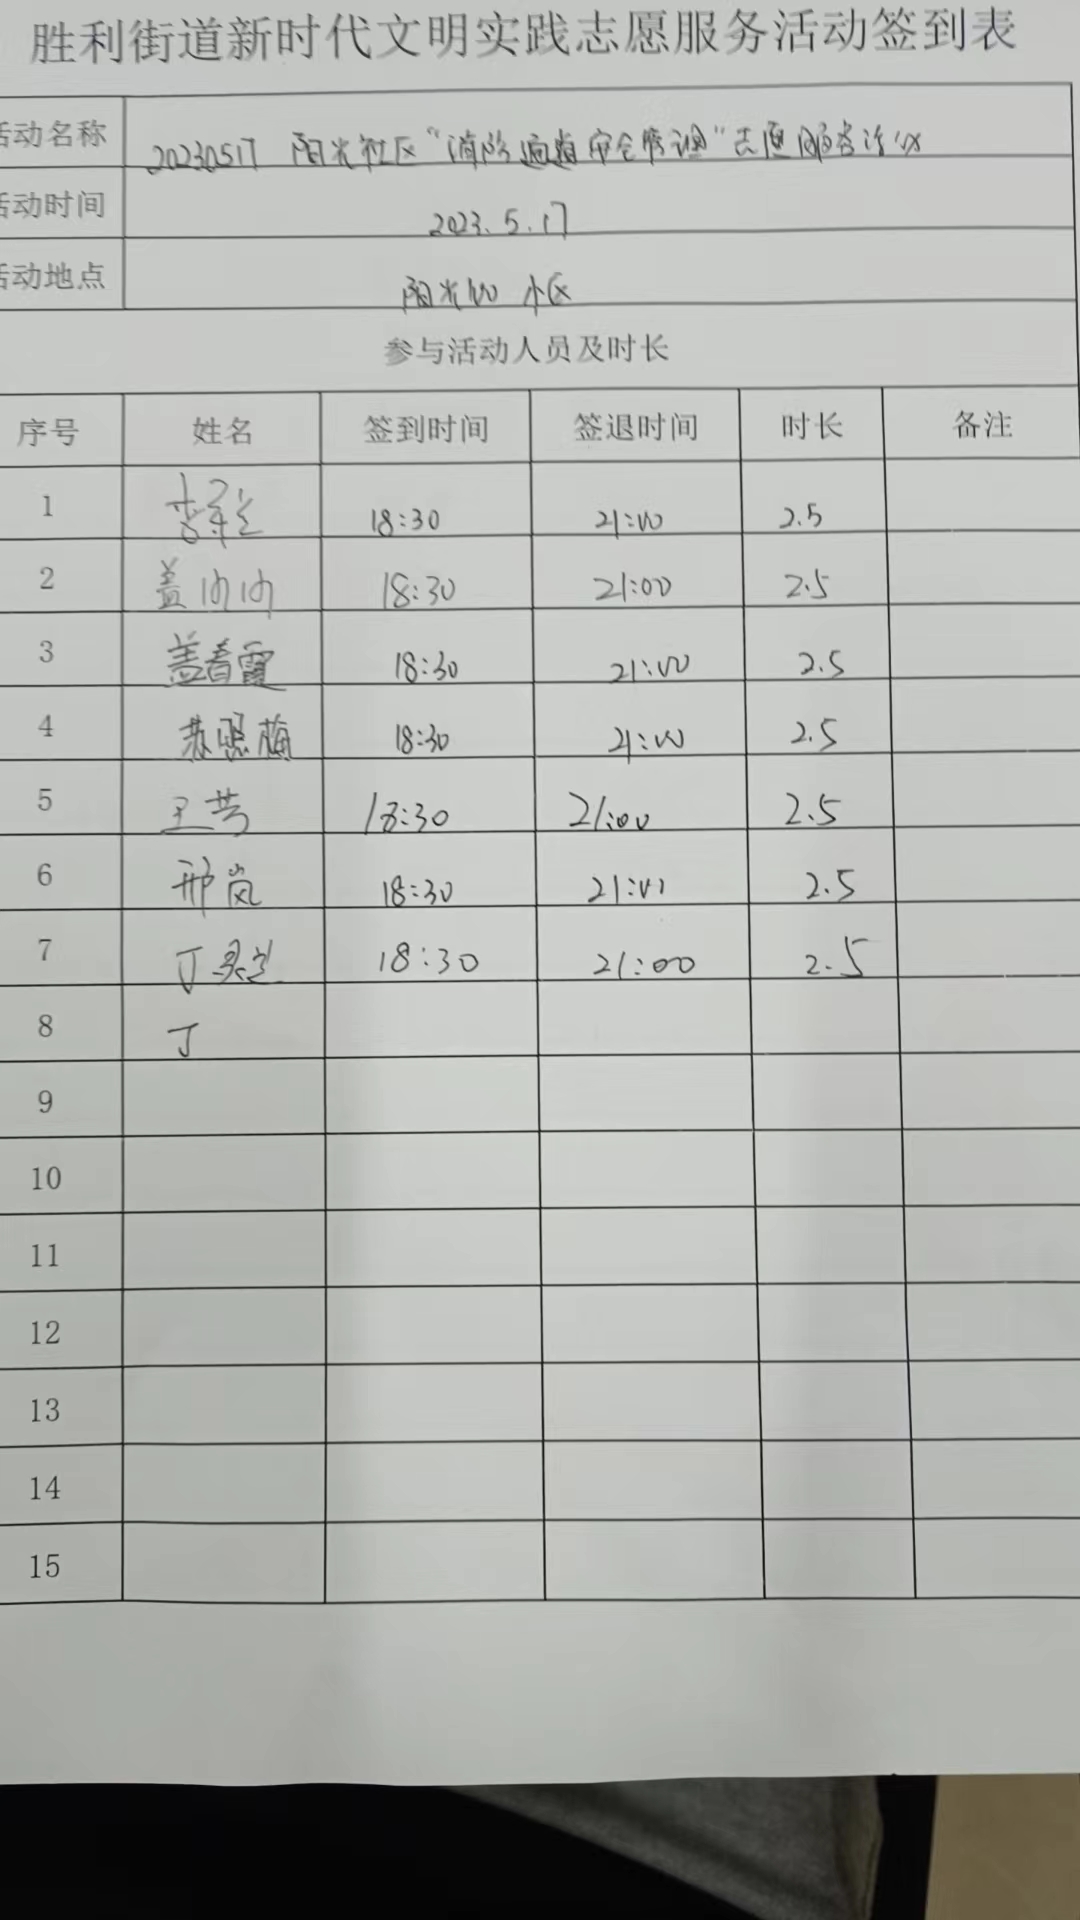 胜利街道新时代文明实践志愿服务活动签到表
活动名称 20230517 阳光社区“消防通道安全管理”志愿服务活动
活动时间 2023.5.17
活动地点 阳光100 小区
参与活动人员及时长
序号 姓名 签到时间 签退时间 时长 备注
1 18:30 21:00 2.5
2 盖 18:30 21:00 2.5
3 盖春霞 18:30 21:00 2.5
4 苏照梅 18:30 21:00 2.5
5 王芳 18:30 21:00 2.5
6 邢岚 18:30 21:00 2.5
7 丁 18:30 21:00 2.5
8 丁
9
10
11
12
13
14
15